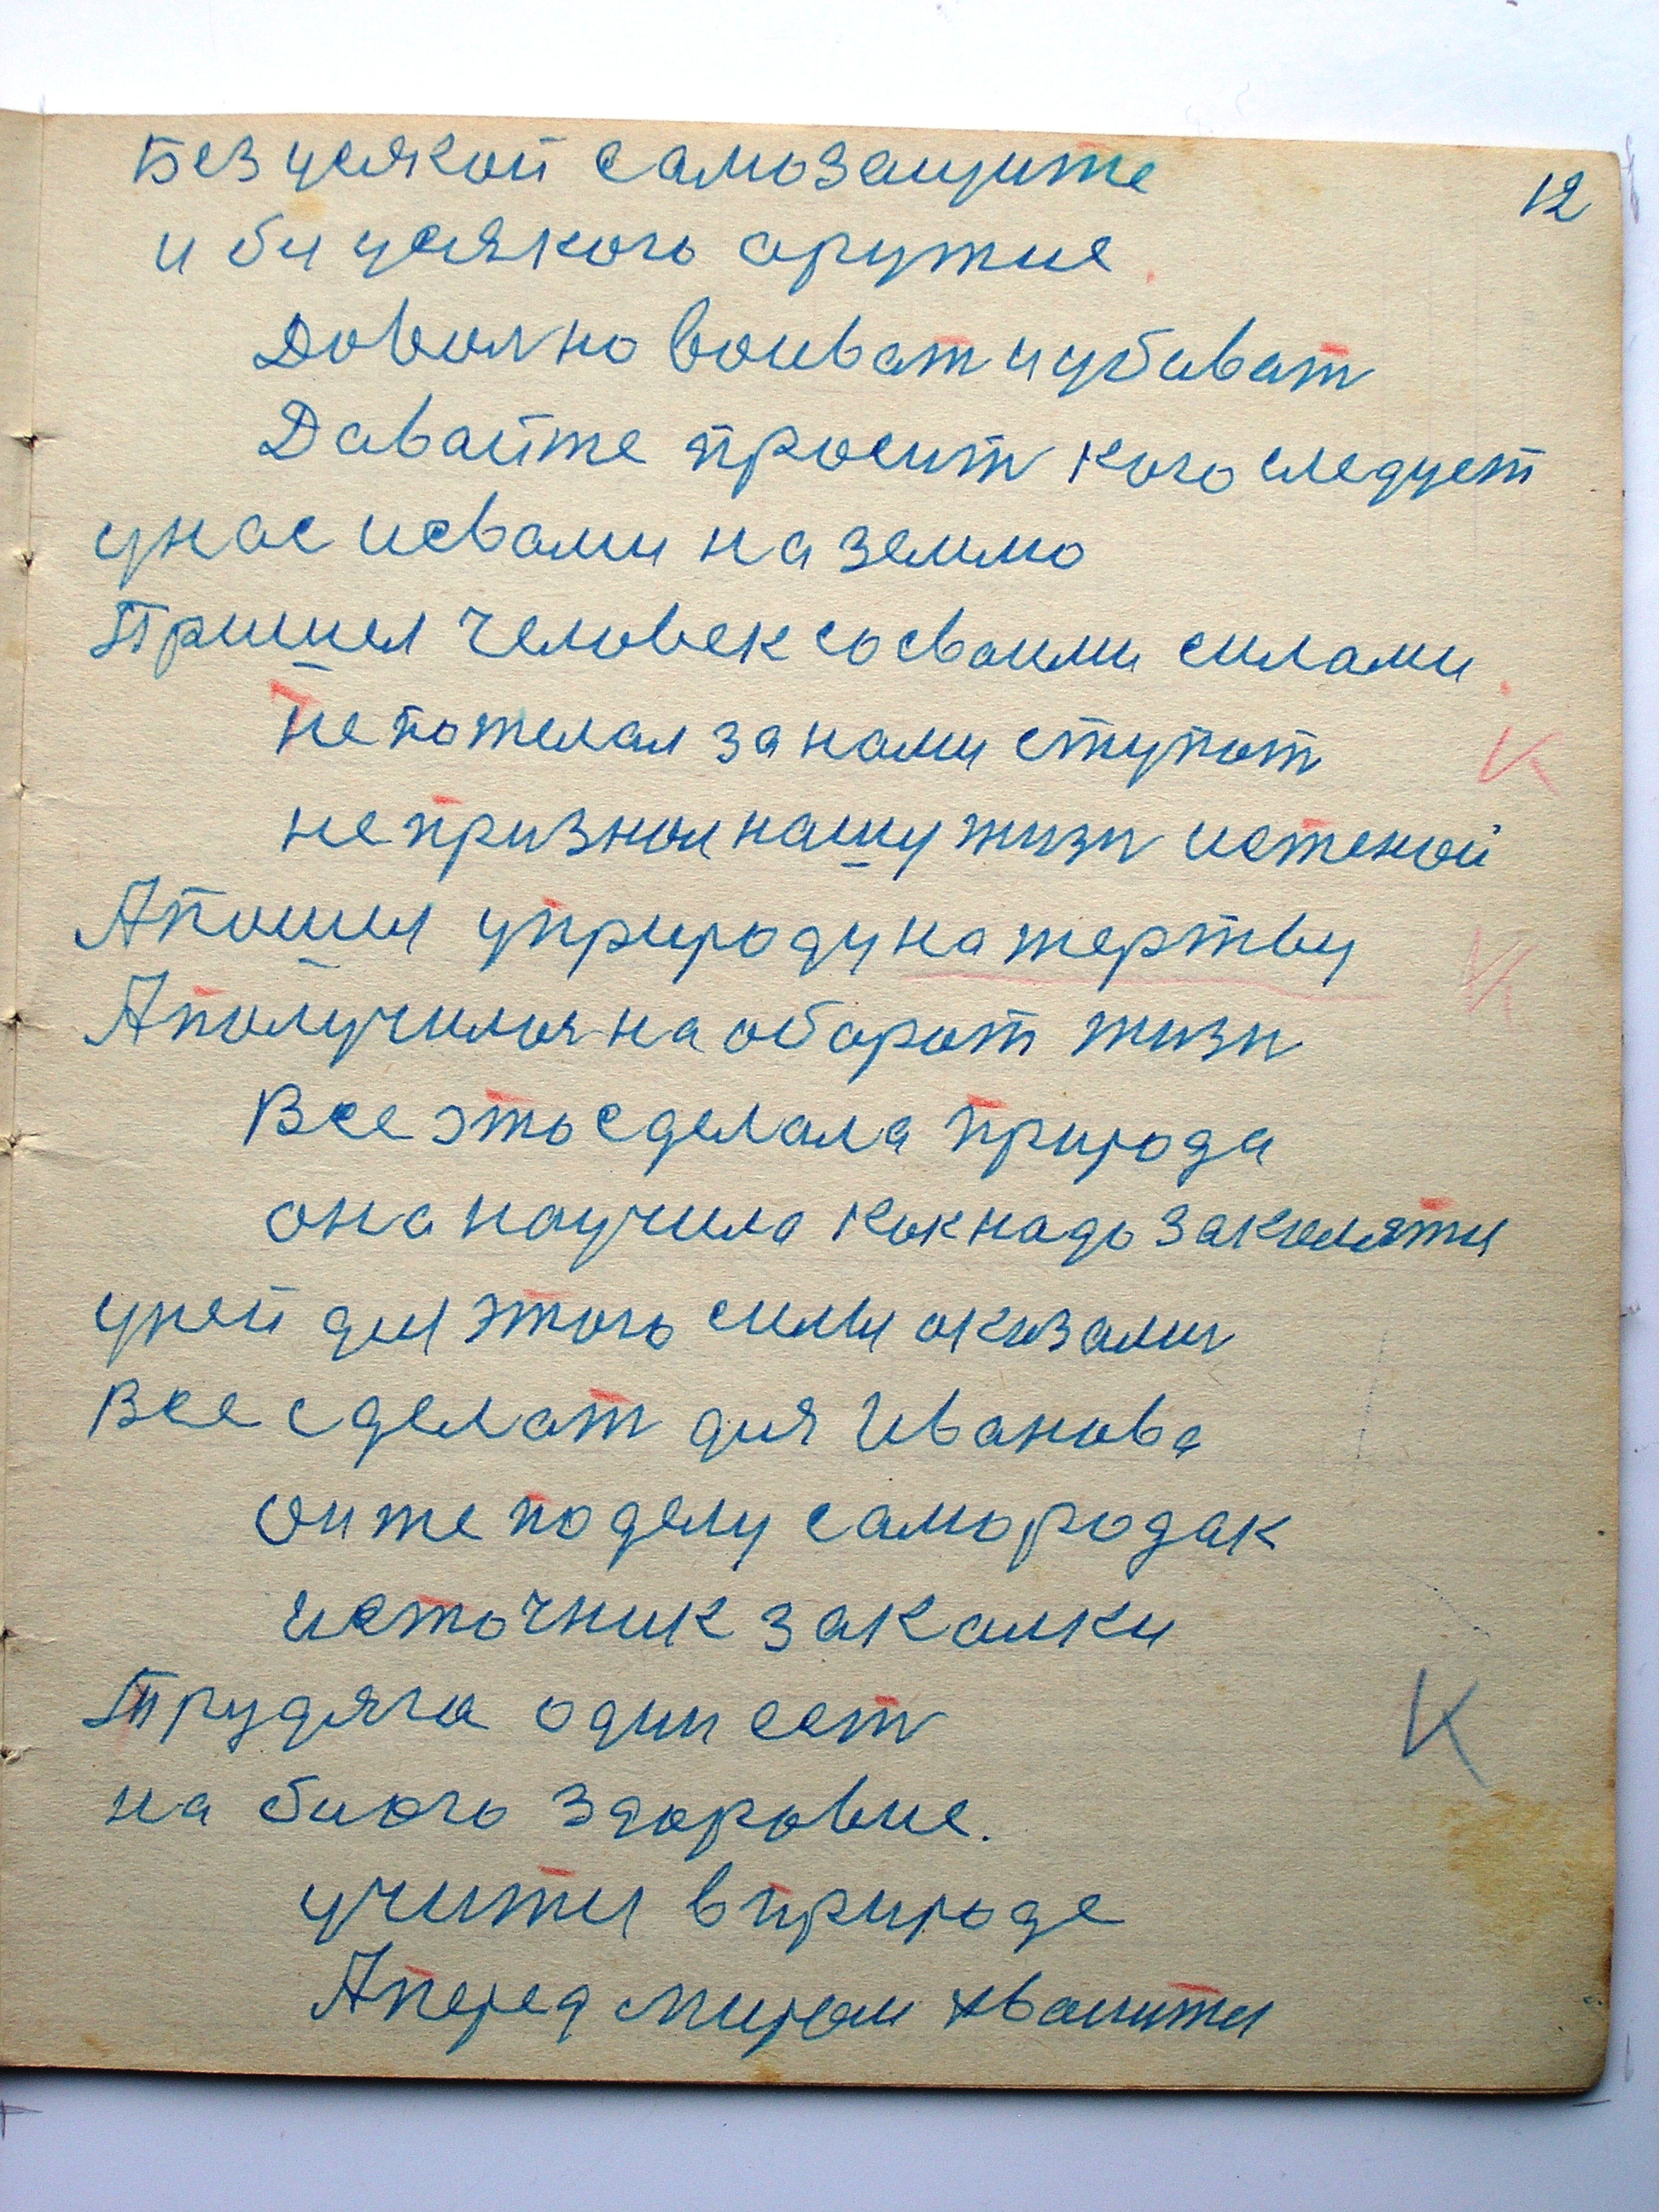 12
Без усякой самозащите
и биз усякого оружие
Доволно воиват и убиват
Давайте просит кого следует
унас исвами на землю
Пришел человек со сваими силами
не пожелал за нами ступат
не признал нашу жизн истеной
А пошел уприроду на жертву
А получилоя на оборот жизн
Все это сделала природа
она научила как надо закалятся
уней для этого силы оказалис
Все сделат для Иванова
он же по делу самородак
источник закалки
Трудяга один ест
на биюго здоровие.
учится в природе
А перед миром хвалится